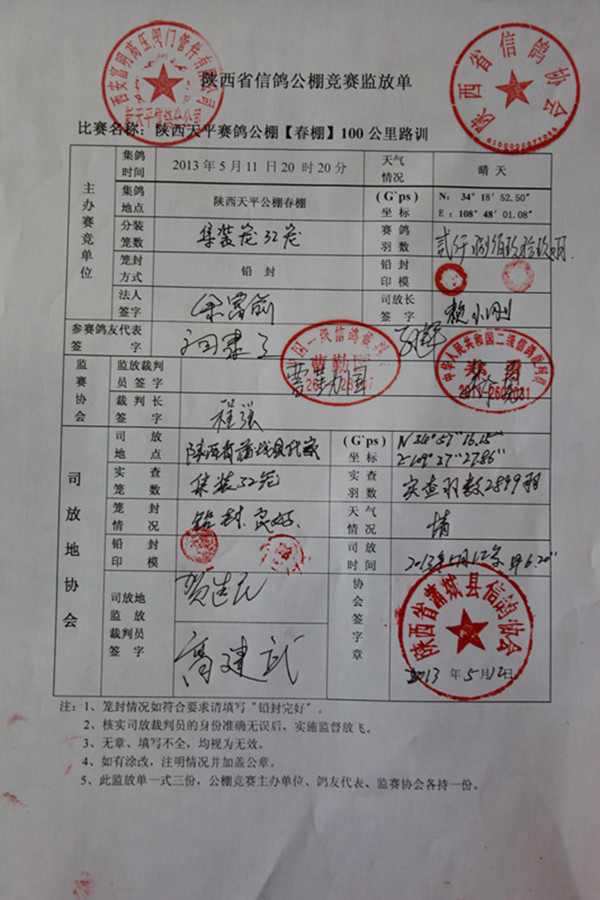 陕西省信鸽公棚竞赛监放单
陕西省信鸽协会
比赛名称：陕西天平赛鸽公棚【春棚】100公里路训
主办赛竞单位
集鸽时间 2013年5月11日20时20分 天气情况 晴天
集鸽地点 陕西天平公棚春棚 (G`ps)坐标 N: 34° 18′52.50″ E:108° 48′01.08″
分装笼数 集装笼32笼 赛鸽羽数
笼封方式 铅封 铅封印模
法人签字 司放长签字
参赛鸽友代表签字
监赛协会
监放裁判员签字
裁判长签字 程强
司放地协会
司放地点 陕西省蒲城县 (G`ps)坐标 N34°57″16.15″
实查笼数 集装32笼 实查羽数 实查羽数2899羽
笼封情况 铅封完好 天气情况 晴
铅封印模 司放时间 2013年5月12号 早6.20″
司放地监放裁判员签字 协会签字章
高建武
陕西省蒲城县信鸽协会
2013年5月12日
注：1、笼封情况如符合要求请填写"铅封完好"。
2、核实司放裁判员的身份准确无误后，实施监督放飞。
3、无章、填写不全，均视为无效。
4、如有涂改，注明情况并加盖公章。
5、此监放单一式三份，公棚竞赛主办单位、鸽友代表、监赛协会各持一份。